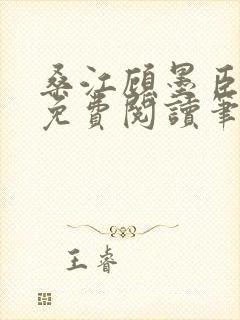 桑江顾墨臣
免費閱讀筆
王睿